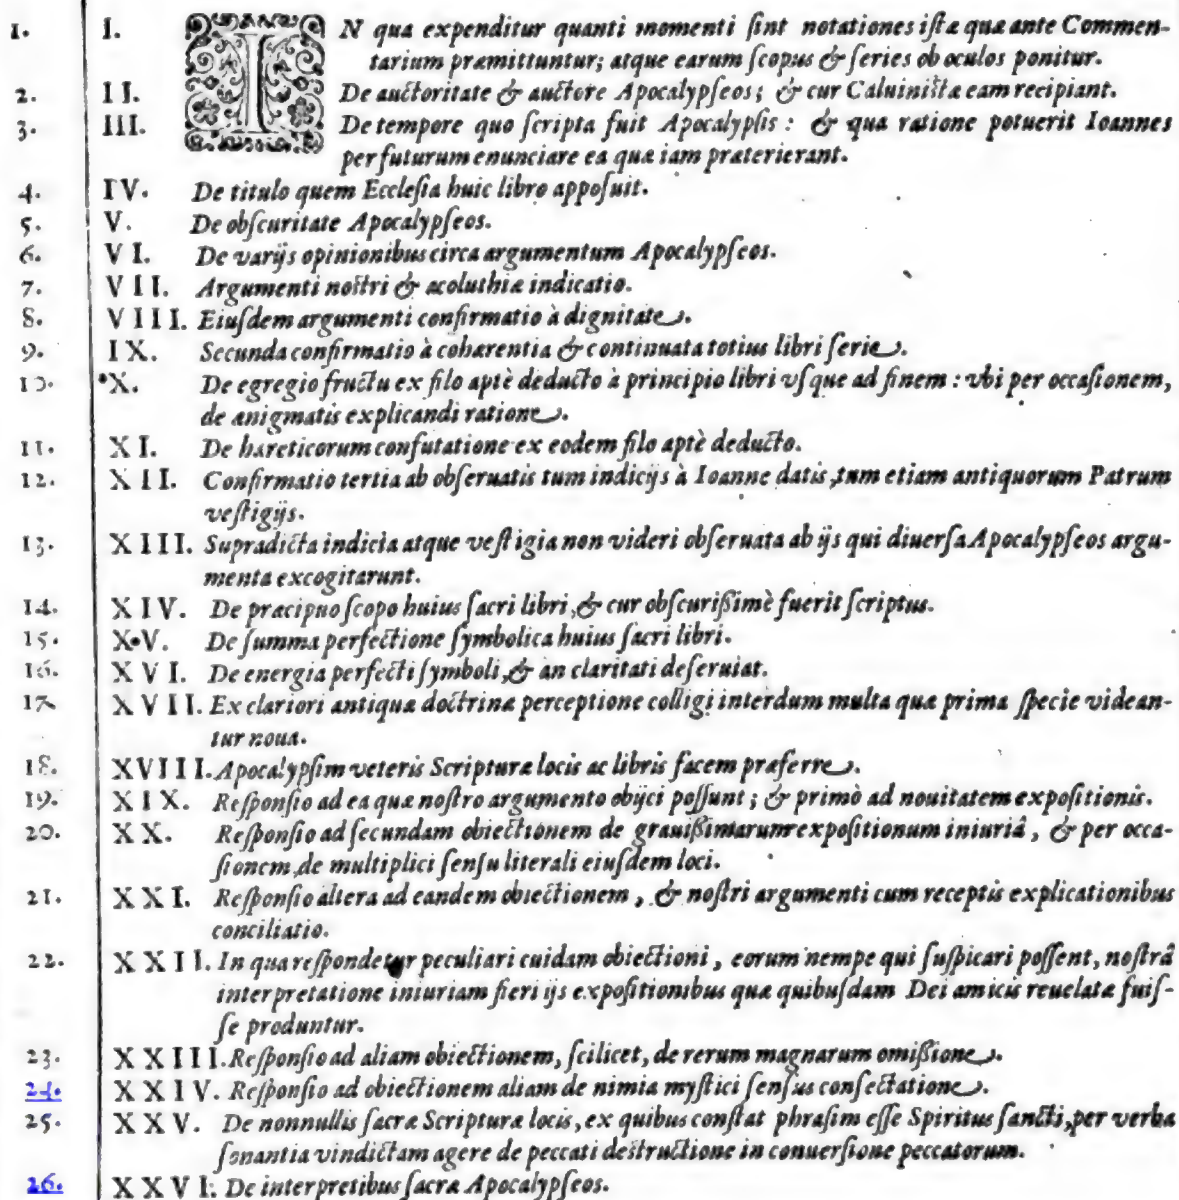 1. I. IN qua expenditur quanti momenti ſint notationes iſtæ quæ ante Commen-
tarium præmittuntur; atque earum ſcopus & ſeries ob oculos ponitur.
2. II. De auctoritate & auctore Apocalypſeos; & cur Caluiniſtæ eam recipiant.
3. III. De tempore quo ſcripta fuit Apocalypſis: & qua ratione potuerit Ioannes
per futurum enunciare ea quæ iam præterierant.
4. IV. De titulo quem Eccleſia huic libro appoſuit.
5. V. De obſcuritate Apocalypſeos.
6. VI. De varijs opinionibus circa argumentum Apocalypſeos.
7. VII. Argumenti noſtri & acoluthiæ indicatio.
8. VIII. Eiuſdem argumenti confirmatio à dignitate.
9. IX. Secunda confirmatio à cohærentia & continuata totius libri ſerie.
10. X. De egregio fructu ex filo aptè deducto à principio libri vſque ad finem: vbi per occaſionem,
de ænigmatis explicandi ratione.
11. XI. De hæreticorum confutatione ex eodem filo aptè deducto.
12. XII. Confirmatio tertia ab obſeruatis tum indicijs à Ioanne datis, tum etiam antiquorum Patrum
veſtigijs.
13. XIII. Supradicta indicia atque veſtigia non videri obſeruata ab ijs qui diuerſa Apocalypſeos argu-
menta excogitarunt.
14. XIV. De præcipuo ſcopo huius ſacri libri, & cur obſcurißimè fuerit ſcriptus.
15. XV. De ſumma perfectione ſymbolica huius ſacri libri.
16. XVI. De energia perfecti ſymboli, & an claritati deſeruiat.
17. XVII. Ex clariori antiquæ doctrinæ perceptione colligi interdum multa quæ prima ſpecie videan-
tur noua.
18. XVIII. Apocalypſim veteris Scripturæ locis ac libris facem præferre.
19. XIX. Reſponſio ad ea quæ noſtro argumento obijci poſſunt; & primò ad nouitatem expoſitionis.
20. XX. Reſponſio ad ſecundam obiectionem de grauißimarum expoſitionum iniuriâ, & per occa-
ſionem, de multiplici ſenſu literali eiuſdem loci.
21. XXI. Reſponſio altera ad eandem obiectionem, & noſtri argumenti cum receptis explicationibus
conciliatio.
22. XXII. In qua reſpondetur peculiari cuidam obiectioni, eorum nempe qui ſuſpicari poſſent, noſtrâ
interpretatione iniuriam fieri ijs expoſitionibus quæ quibuſdam Dei amicis reuelatæ fuiſ-
ſe produntur.
23. XXIII. Reſponſio ad aliam obiectionem, ſcilicet, de rerum magnarum omißione.
24. XXIV. Reſponſio ad obiectionem aliam de nimia myſtici ſenſus conſectatione.
25. XXV. De nonnullis ſacræ Scripturæ locis, ex quibus conſtat phraſim eſſe Spiritus ſancti, per verba
ſonantia vindictam agere de peccati deſtructione in conuerſione peccatorum.
26. XXVI. De interpretibus ſacræ Apocalypſeos.